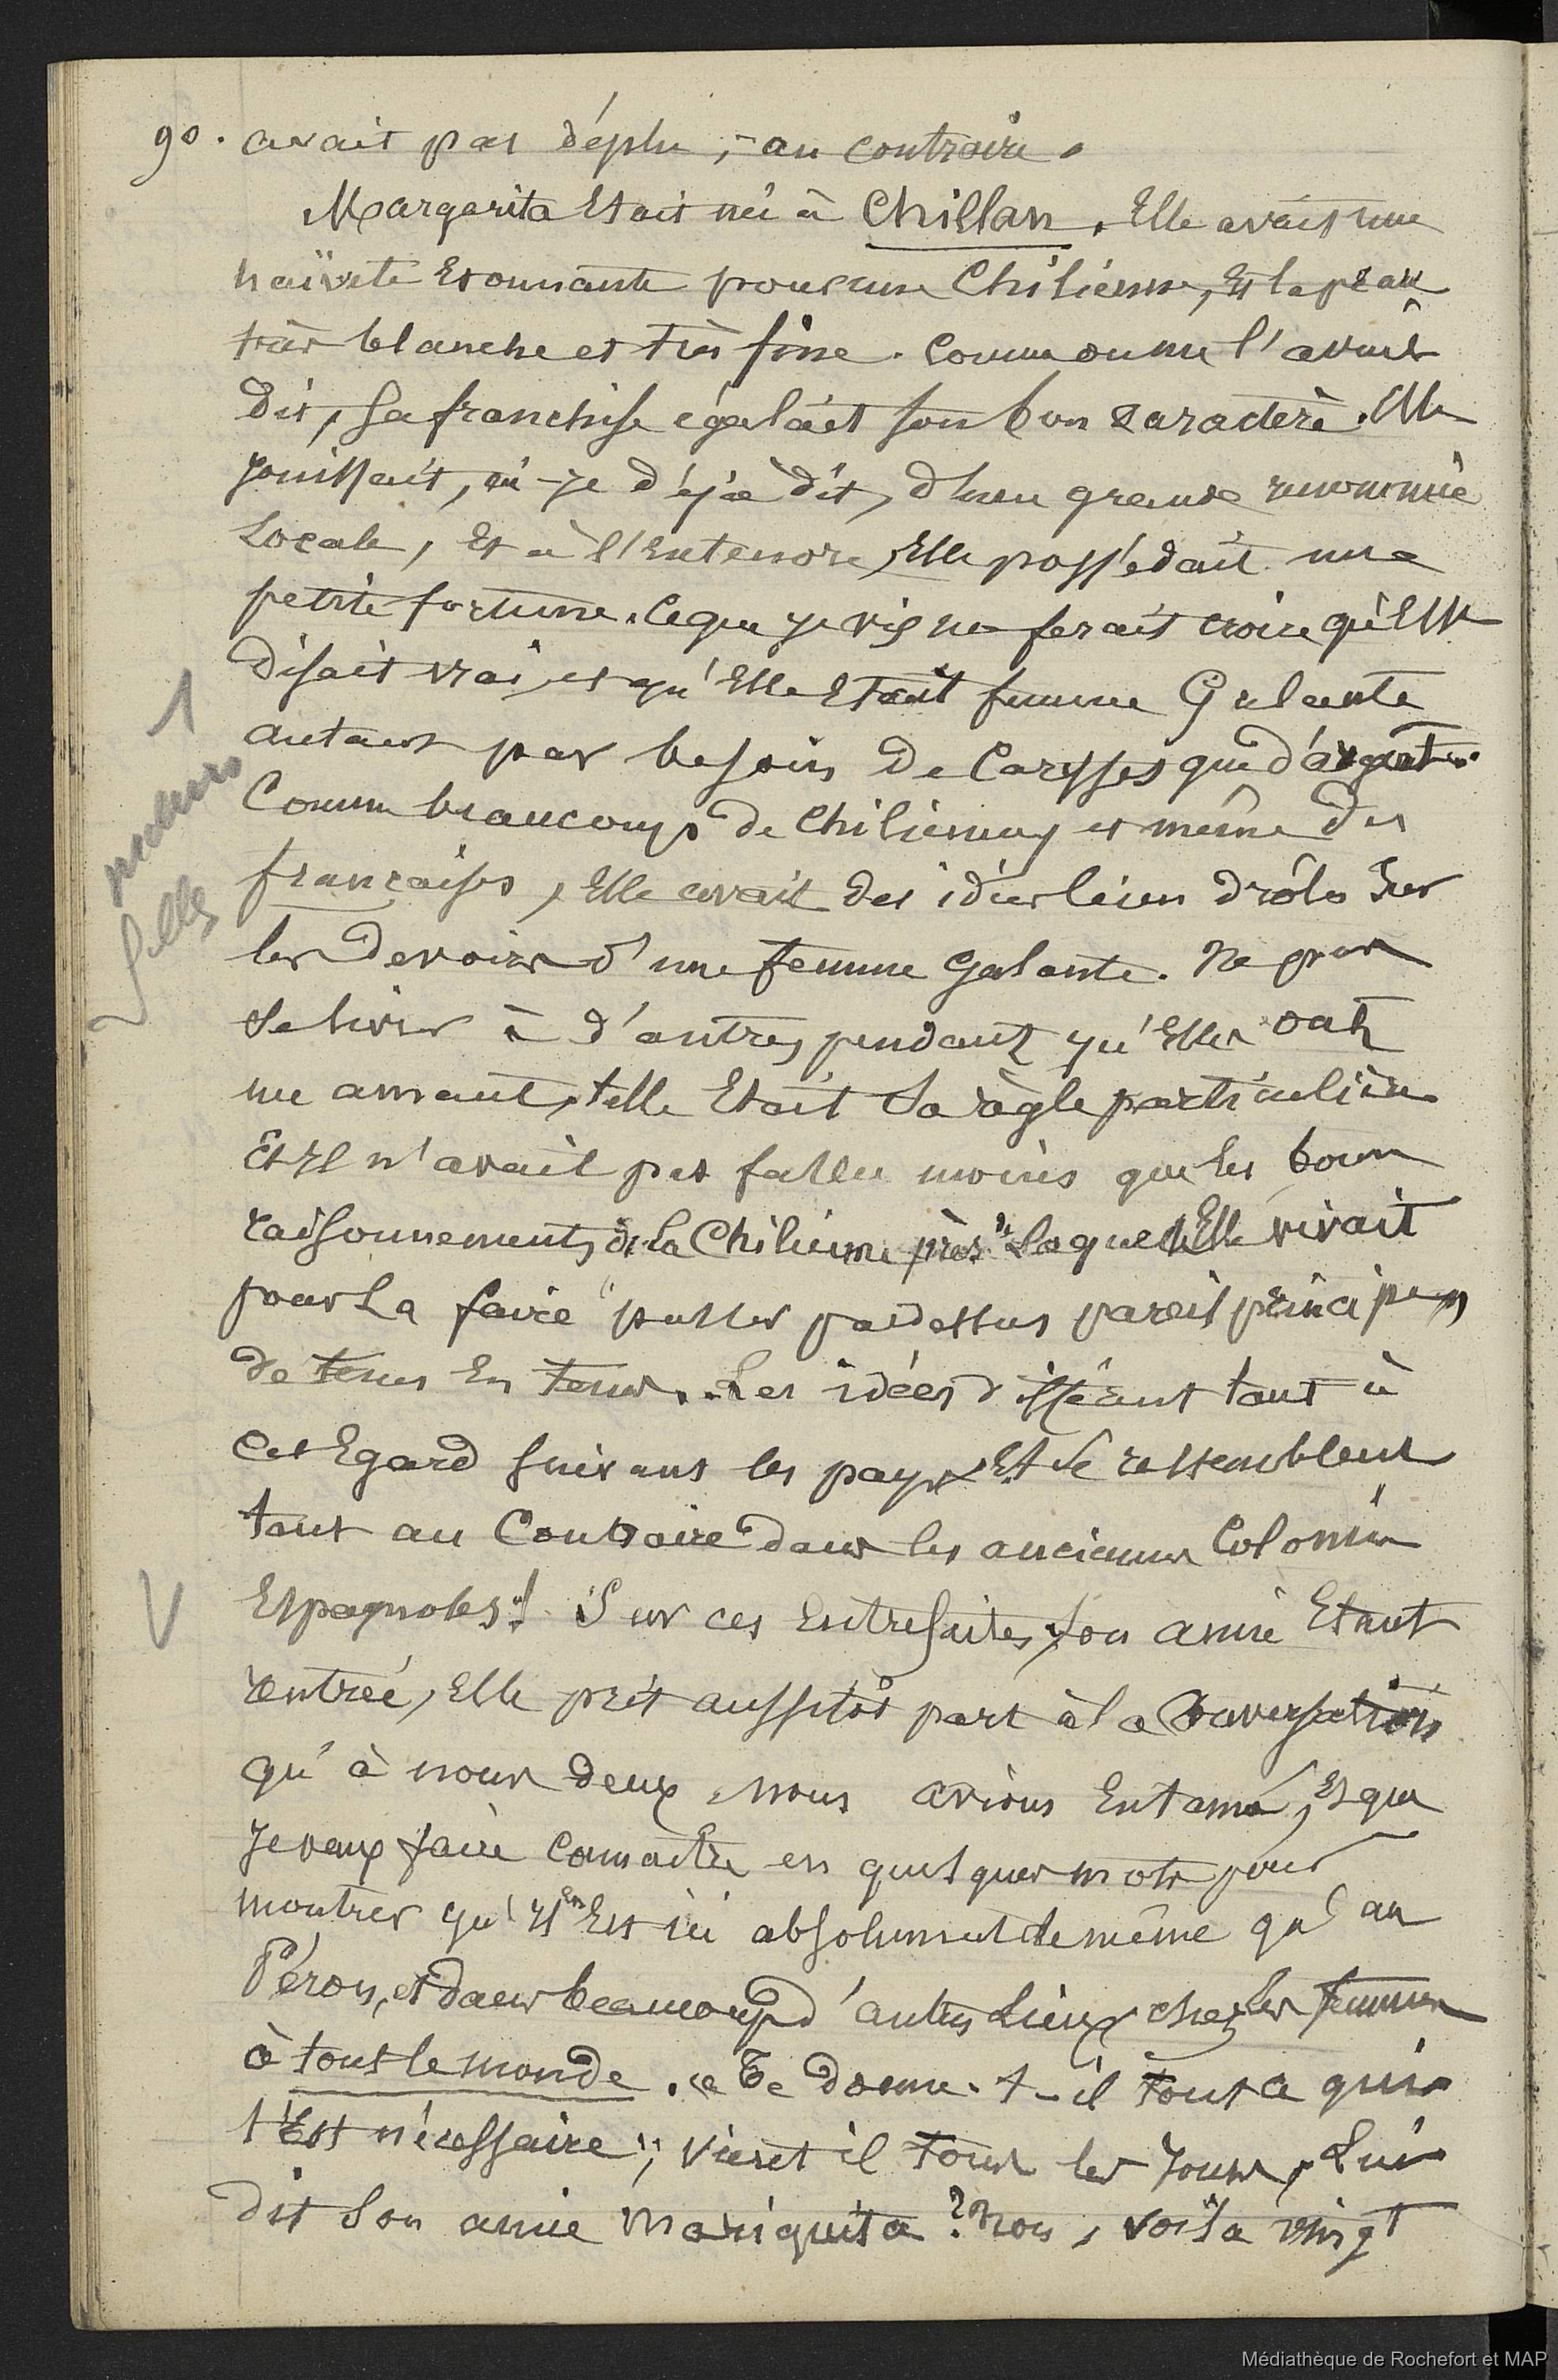 90. avait pas déplu, - au contraire.
Margarita Etait née à Chillan. Elle avait une
naïveté Etonnante pour une Chilienne, Et la peau
très blanche et très fine. Comme on me l'avait
dit, sa franchise égalait son bon caractère. Elle
jouissait, ai-je déjà dit, d'une grande renommée
Locale, Et à l'Entendre, Elle possédait une
petite fortune. Ce que je vis me ferait croire qu'Elle
disait vrai, et qu'Elle Etait femme Galante
autant par besoin de Caresses que d'argent.
Comme beaucoup de Chiliennes et même des
françaises, Elle avait des idées bien drôles sur
les devoirs d'une femme Galante. Ne pas
se livrer à d'autres pendant qu'Elles ont
un amant, telle Etait sa règle particulière
Et Il n'avait pas fallu moins que les bons
raisonnements de la Chilienne près de laquelle Elle vivait
pour La faire passer par dessus pareils principes
de tems En tems. Les idées diffèrent tant à
cet Egard suivant les pays Et se ressemblent
tant au Contraire dans les anciennes Colonies
Espagnoles! Sur ces Entrefaites, son amie Etant
rentrée, Elle prit aussitôt part à la Conversation
qu'à nous deux nous avions Entamé, Et que
Je veux faire Connaître en quelques mots pour
montrer qu'Il en Est ici absolument de même qu'au
Pérou, et dans beaucoup d'autres Lieux chez les femmes
à tout le monde. « Te donne-t-il tout ce qui
t'Est nécessaire; vient il tous les Jours, Lui
dit son amie Mariquita? Non, voilà vingt
1
mœurs
filles
V
Médiathèque de Rochefort et MAP